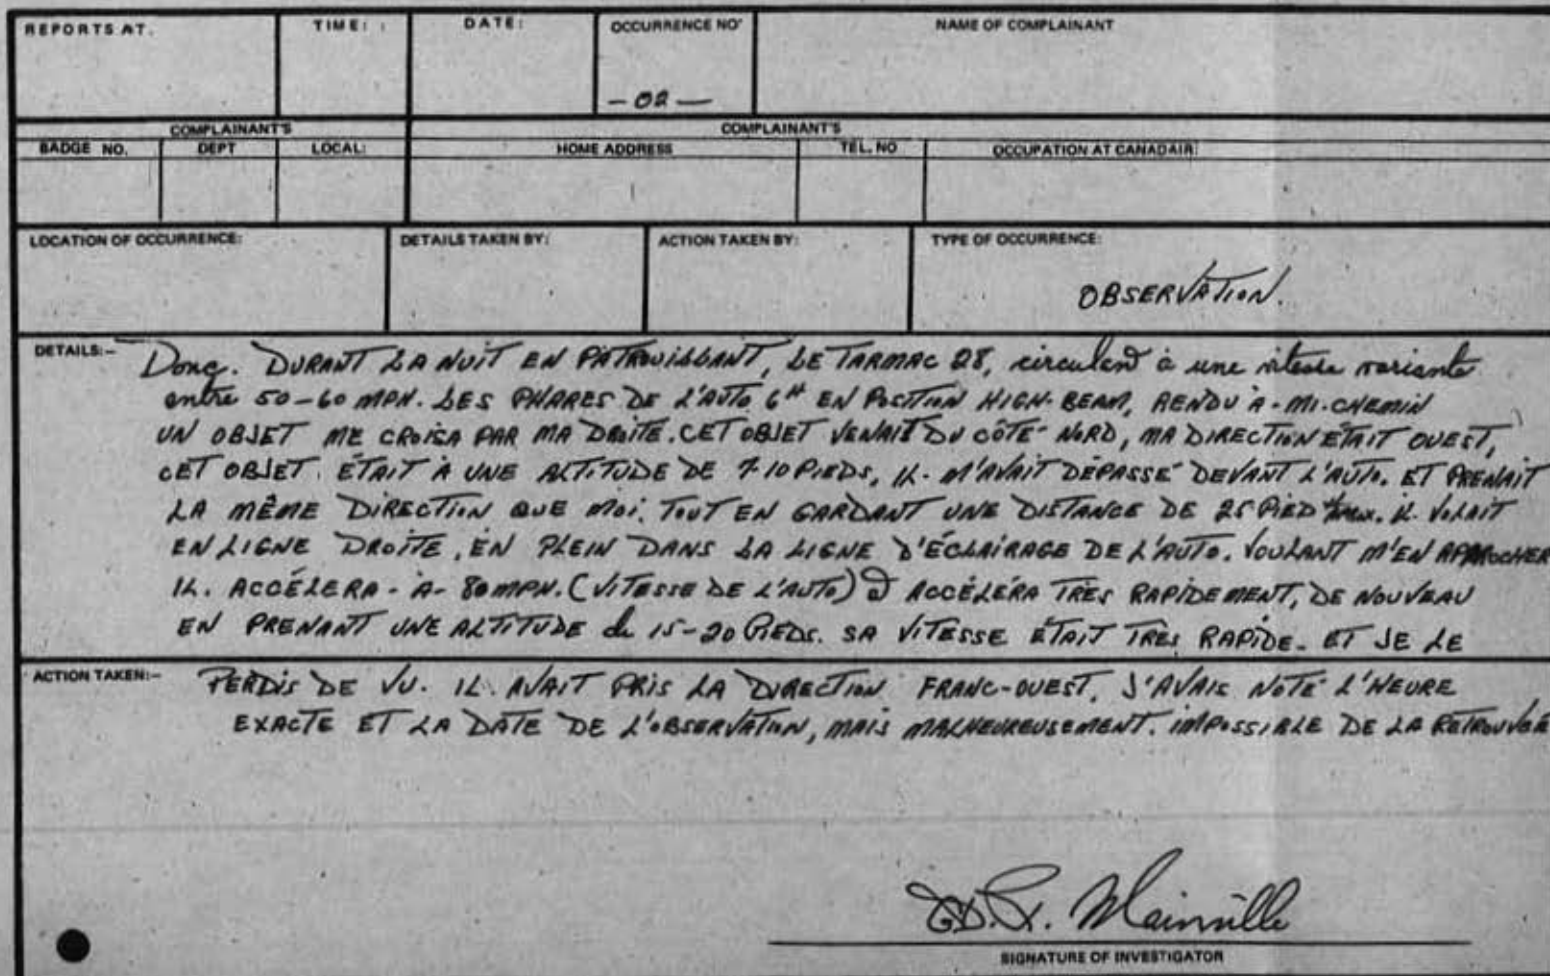 REPORTS AT.
TIME:
DATE:
OCCURRENCE NO'
NAME OF COMPLAINANT
- 02 -
COMPLAINANT'S
COMPLAINANT'S
BADGE NO.
DEPT
LOCAL:
HOME ADDRESS
TEL. NO
OCCUPATION AT CANADAIR:
LOCATION OF OCCURRENCE:
DETAILS TAKEN BY:
ACTION TAKEN BY:
TYPE OF OCCURRENCE:
OBSERVATION.
DETAILS:- Donc. DURANT LA NUIT EN PATROUILLANT, LE TARMAC 28, circuland à une vitesse variante
entre 50-60 MPH. LES PHARES DE L'AUTO EN POSITION HIGH-BEAM, RENDU À-MI-CHEMIN
UN OBJET ME CROISA PAR MA DROITE. CET OBJET VENAIT DU CÔTÉ NORD, MA DIRECTION ÉTAIT OUEST,
CET OBJET ÉTAIT À UNE ALTITUDE DE 7-10 PIEDS, IL M'AVAIT DÉPASSÉ DEVANT L'AUTO. ET PRENAIT
LA MÊME DIRECTION QUE MOI. TOUT EN GARDANT UNE DISTANCE DE 25 PIED IL VOLAIT
EN LIGNE DROITE, EN PLEIN DANS LA LIGNE D'ÉCLAIRAGE DE L'AUTO. VOULANT M'EN APPROCHER
IL. ACCÉLERA - À - 80 MPH. (VITESSE DE L'AUTO) ACCÉLÉRA TRÈS RAPIDEMENT, DE NOUVEAU
EN PRENANT UNE ALTITUDE de 15-20 PIEDS. SA VITESSE ÉTAIT TRÈS RAPIDE. ET JE LE
ACTION TAKEN:- PERDIS DE VU. IL AVAIT PRIS LA DIRECTION FRANC-OUEST. J'AVAIS NOTÉ L'HEURE
EXACTE ET LA DATE DE L'OBSERVATION, MAIS MALHEUREUSEMENT. IMPOSSIBLE DE LA RETROUVER
Mainville
SIGNATURE OF INVESTIGATOR